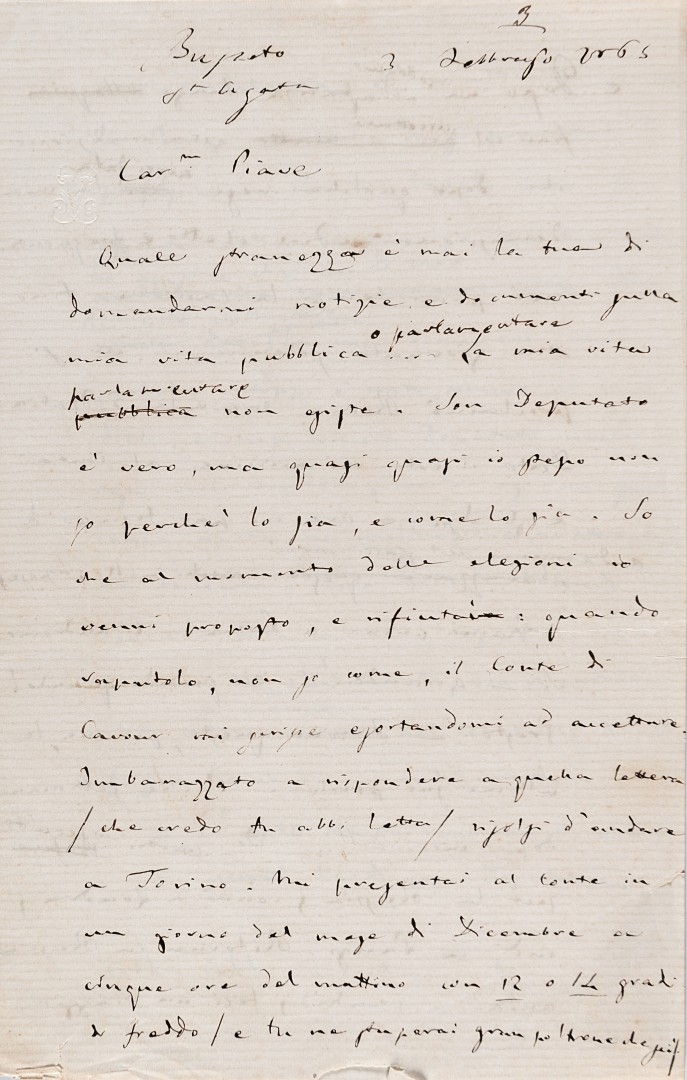 3
Busseto 3 Febbrajo 1865
St Agata
Car.mo Piave
Quale stranezza è mai la tua di
domandarmi notizie, e documenti sulla
mia vita pubblica o parlamentare .... La mia vita
parlamentare
pubblica non esiste. Son Deputato
è vero, ma quasi quasi io stesso non
so perchè lo sia, e come lo sia. So
che al momento delle elezioni io
venni proposto, e rifiutai: quando
saputolo, non so come, il Conte di
Cavour mi scrisse esortandomi ad accettare.
Imbarazzato a rispondere a quella lettera
/che credo tu abbi letta/ risolsi d'andare
a Torino. Mi presentai al Conte in
un giorno del mese di Dicembre a
cinque ore del mattino con 12 o 14 gradi
di freddo /e tu ne stuperai gran poltrone che sei/